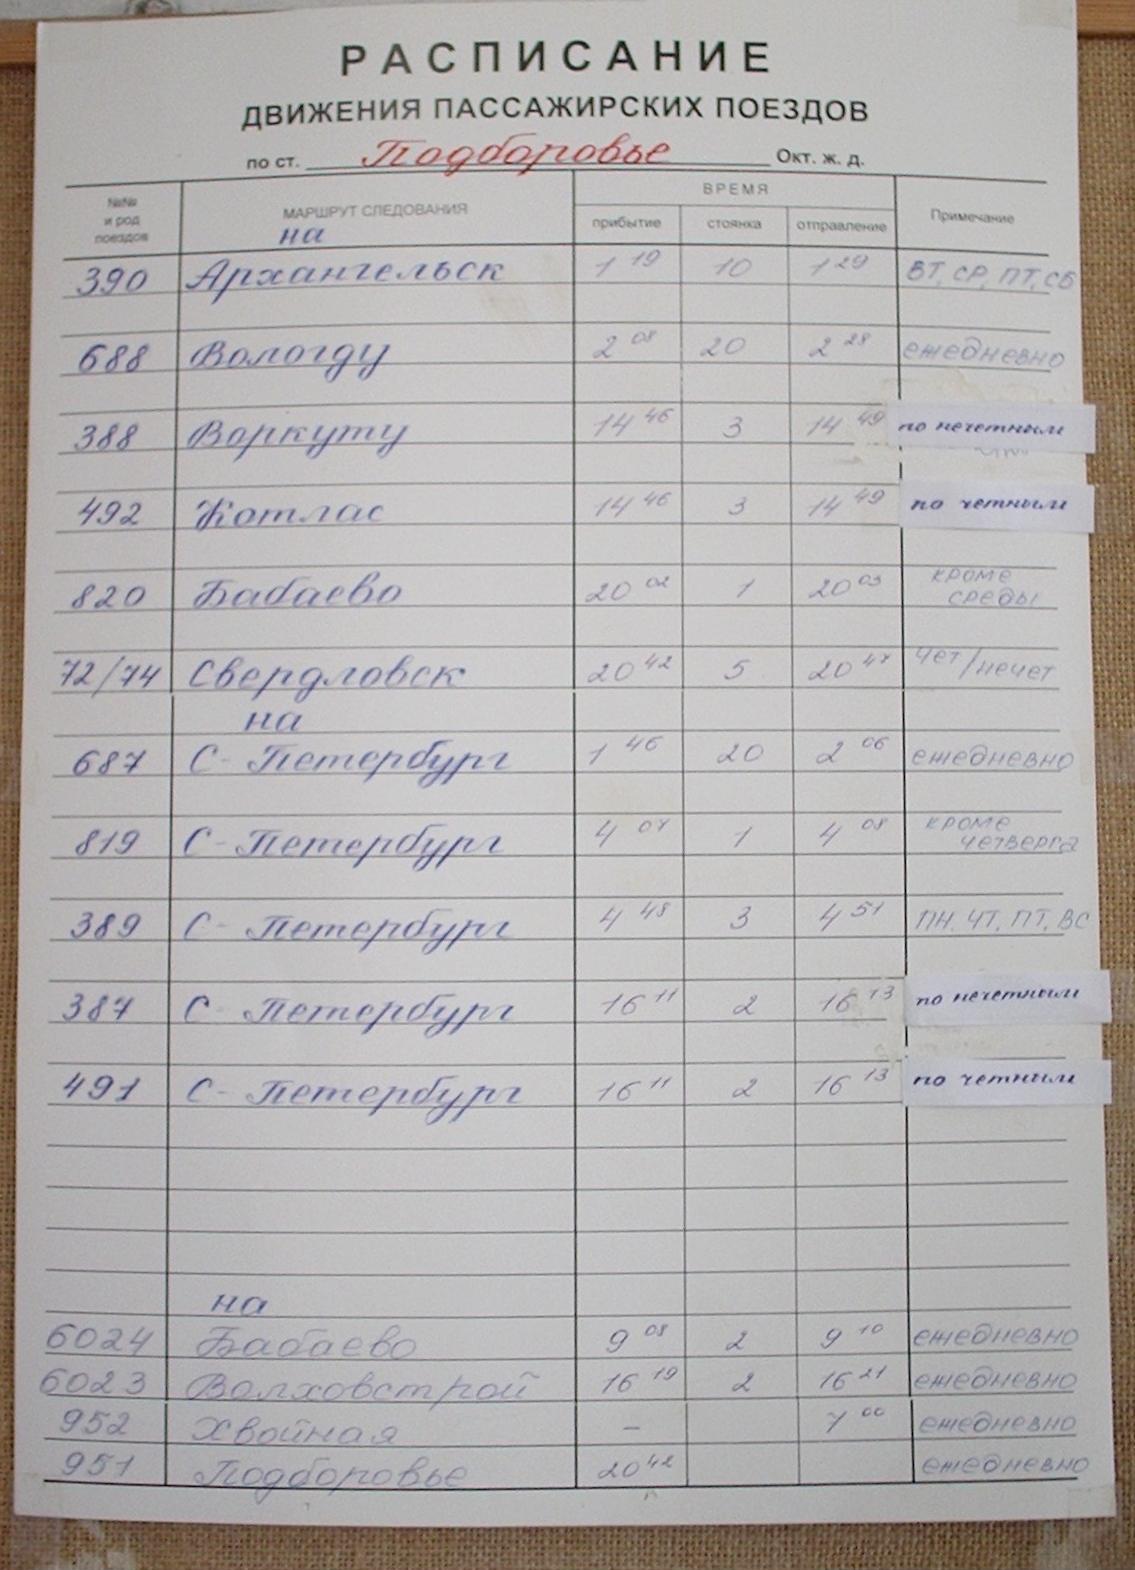 РАСПИСАНИЕ
ДВИЖЕНИЯ ПАССАЖИРСКИХ ПОЕЗДОВ
по ст. Подборовье Окт. ж. д.
№№ и род поездов МАРШРУТ СЛЕДОВАНИЯ ВРЕМЯ Примечание
прибытие стоянка отправление
на
390 Архангельск 1 19 10 1 29 ВТ, СР, ПТ, СБ
688 Вологду 2 08 20 2 28 ежедневно
388 Воркуту 14 46 3 14 49 по нечетным
492 Котлас 14 46 3 14 49 по четным
820 Бабаево 20 02 1 20 03 кроме среды
72/74 Свердловск 20 42 5 20 47 чет/нечет
на
687 С-Петербург 1 46 20 2 06 ежедневно
819 С-Петербург 4 07 1 4 08 кроме четверга
389 С-Петербург 4 48 3 4 51 ПН. ЧТ, ПТ, ВС
387 С-Петербург 16 11 2 16 13 по нечетным
491 С-Петербург 16 11 2 16 13 по четным
на
6024 Бабаево 9 08 2 9 10 ежедневно
6023 Волховстрой 16 19 2 16 21 ежедневно
952 Хвойная – 7 00 ежедневно
951 Подборовье 20 42 ежедневно